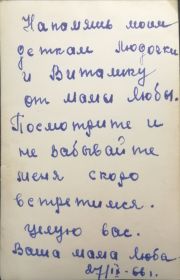 На память моим
деткам Людочки
и Виталику
от мамы Любы.
Посмотрите и
не забывайте
меня скоро
встретимся.
Целую вас.
Ваша мама Люба
27/IX-66 г.